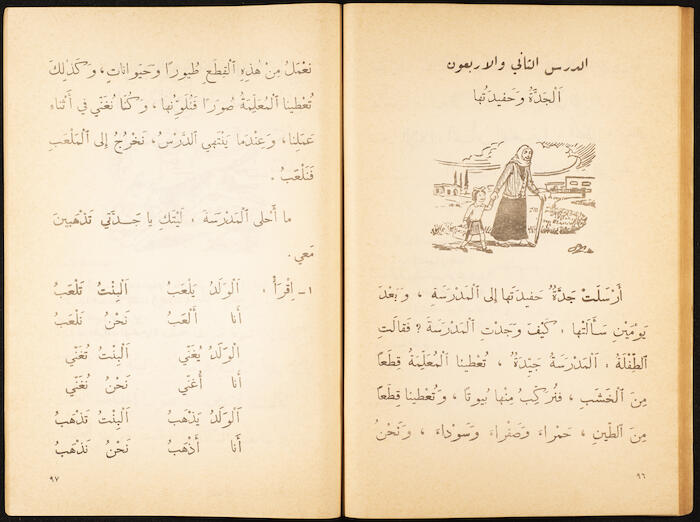 الدرس الثاني والاربعون
اَلْجَدَّةُ وَحَفِيدَتُها
أَرْسَلَتْ جَدَّةٌ حَفِيدَتَها إِلى ٱلْمَدْرَسَةِ ، وَبَعْدَ
يَوْمَيْنِ سَأَلَتْها : كَيْفَ وَجَدْتِ ٱلْمَدْرَسَةَ ؟ فَقالَتِ
ٱلطِّفْلَةُ : اَلْمَدْرَسَةُ جَيِّدَةٌ ، تُعْطينا ٱلْمُعَلِّمَةُ قِطَعاً
مِنَ ٱلْخَشَبِ ، فَنُرَكِّبُ مِنْها بُيوتًا ، وَتُعْطينا قِطَعاً
مِنَ ٱلطّينِ ، حَمْراءَ وَصَفْراءَ وَسَوْداءَ ، وَنَحْنُ
٩٦
نَعْمَلُ مِنْ هٰذِهِ ٱلْقِطَعِ طُيورًا وَحَيَواناتٍ ، وَكَذٰلِكَ
تُعْطينا ٱلْمُعَلِّمَةُ صُوَرًا فَنُلَوِّنُها ، وَكُنّا نُغَنّي في أَثْناء
عَمَلِنا ، وَعِنْدَما يَنْتَهي ٱلدَّرْسُ ، نَخْرُجُ إِلى ٱلْمَلْعَبِ
فَنَلْعَبُ .
ما أَحْلى ٱلْمَدْرَسَةَ ، لَيْتَكِ يا جَدَّتي تَذْهَبينَ
مَعي .
١ – اِقْرَأْ : اَلْوَلَدُ يَلْعَبُ اَلْبِنْتُ تَلْعَبُ
أَنا أَلْعَبُ نَحْنُ نَلْعَبُ
اَلْوَلَدُ يُغَنّي اَلْبِنْتُ تُغَنّي
أَنا أُغَنّي نَحْنُ نُغَنّي
اَلْوَلَدُ يَذْهَبُ اَلْبِنْتُ تَذْهَبُ
أَنا أَذْهَبُ نَحْنُ نَذْهَبُ
٩٧